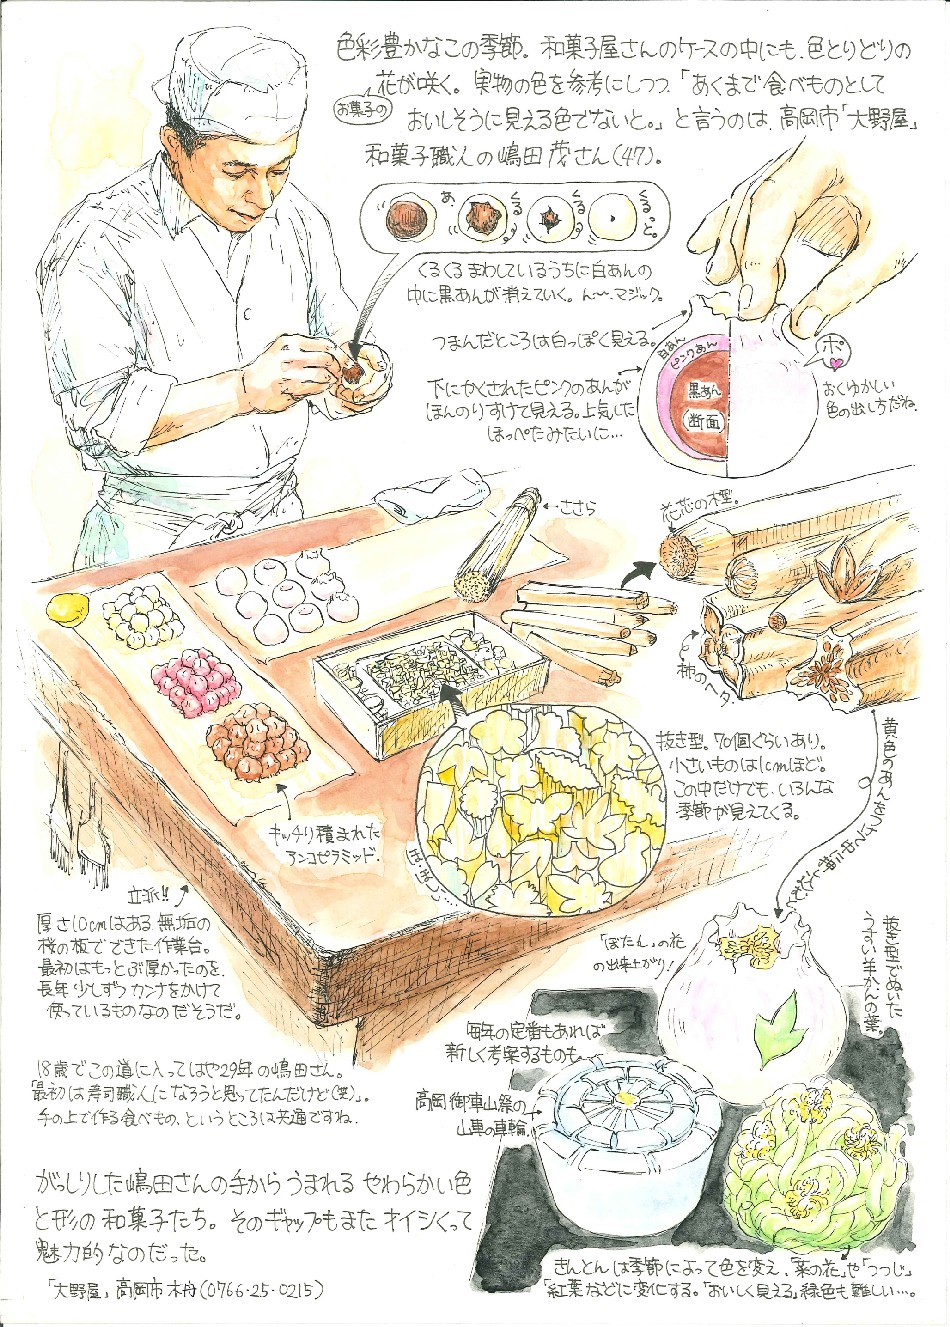 色彩豊かなこの季節。和菓子屋さんのケースの中にも、色とりどりの
花が咲く。実物の色を参考にしつつ「あくまで食べものとして
お菓子の
おいしそうに見える色でないと。」と言うのは、高岡市「大野屋」
和菓子職人の嶋田茂さん(47)。
あ
くる
くる
くるっと。
くるくるまわしているうちに白あんの
中に黒あんが消えていく。ん〜、マジック。
つまんだところは白っぽく見える。
白あん
ピンクあん
黒あん
断面
ポ
下にかくされたピンクのあんが
ほんのりすけて見える。上気した
ほっぺたみたいに…
おくゆかしい
色の出し方だね。
ささら
花芯の木型。
柿のヘタ。
抜き型。70個ぐらいあり。
小さいものは1cmほど。
この中だけでも、いろんな
季節が見えてくる。
黄色のあんを
キッチリ積まれた
アンコピラミッド。
立派!!
厚さ10cmはある無垢の
桜の板でできた作業台。
最初はもっとぶ厚かったのを、
長年少しずつカンナをかけて
使っているものなのだそうだ。
「ぼたん」の花
の出来上がり!
抜き型でぬいた
うすい羊かんの葉。
毎年の定番もあれば
新しく考案するものも。
高岡御車山祭の
山車の車輪。
18歳でこの道に入ってはや29年の嶋田さん。
「最初は寿司職人になろうと思ってたんだけど(笑)」。
手の上で作る食べもの、というところは共通ですね。
がっしりした嶋田さんの手からうまれるやわらかい色
と形の和菓子たち。そのギャップもまたオイシくって
魅力的なのだった。
「大野屋」高岡市木舟(0766・25・0215)
きんとんは季節によって色を変え、「菜の花」や「つつじ」
「紅葉」などに変化する。「おいしく見える」緑色も難しい…。